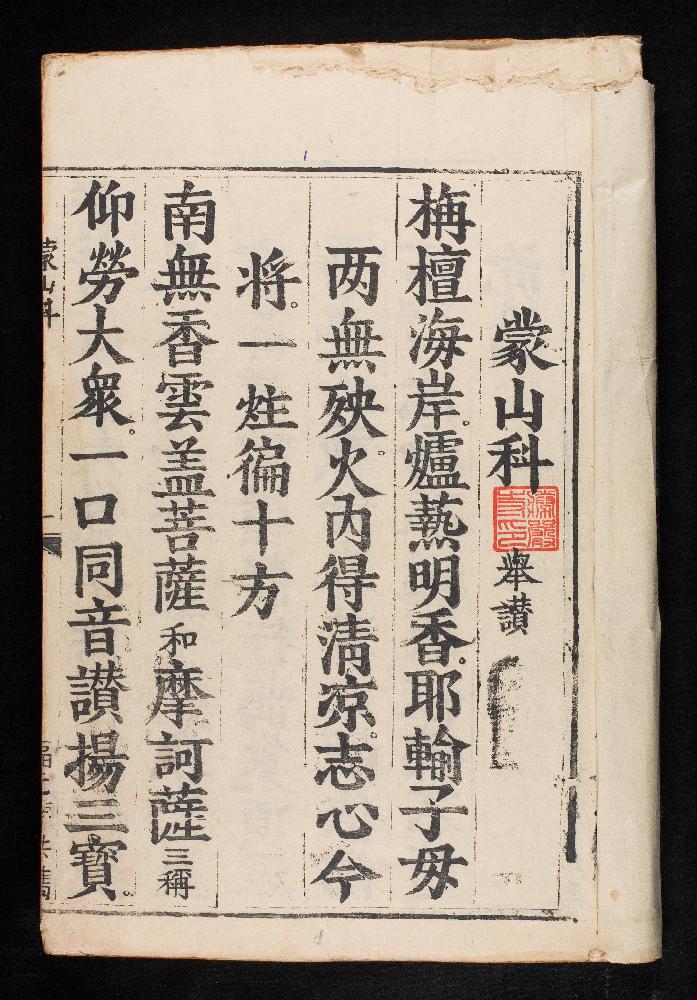 蒙山科 舉讃
栴檀海岸爐爇明香耶輸子毋
两無殃火内得清凉志心今
将一炷徧十方
南無香雲盖菩薩和摩訶薩三稱
仰勞大衆一口同音讃揚三寶
蒙山科